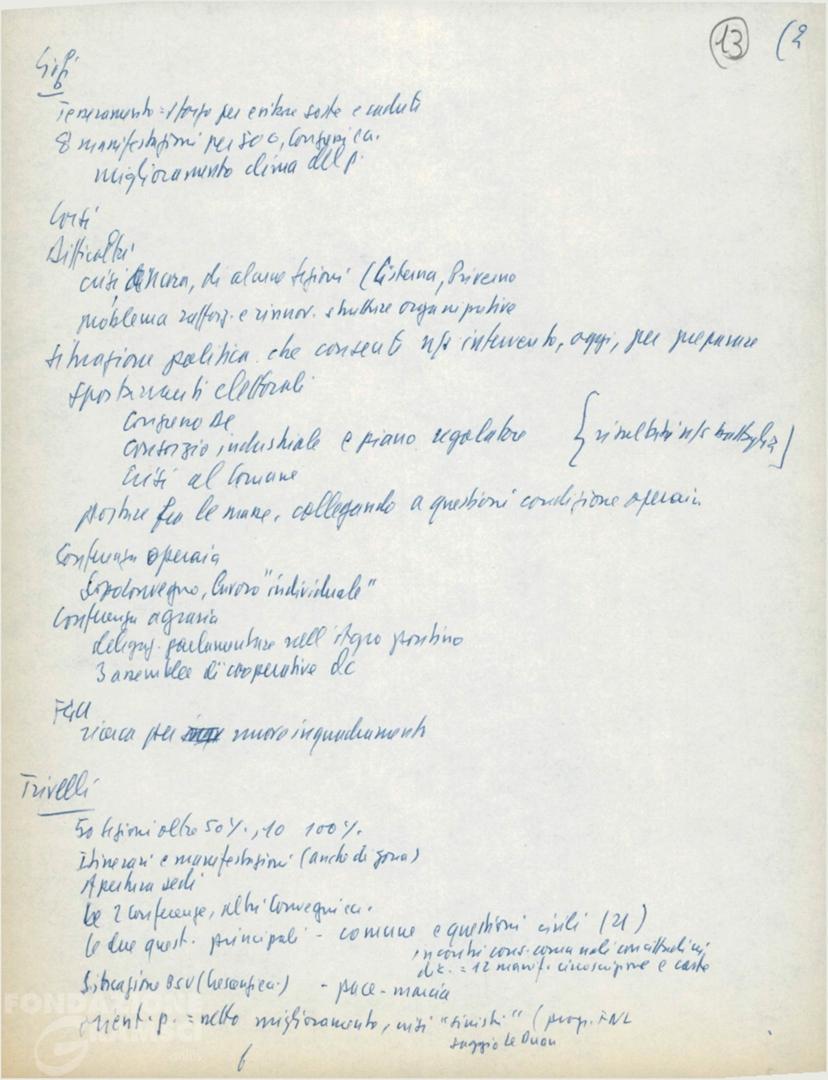 13 (2
Tesseramento = sforzo per evitare soste e cadute
8 manifestazioni per 50º,
miglioramento clima del p.
Corsi
Difficoltà
crisi di alcune sezioni (Cisterna, Priverno
problema rafforz. e rinnov. strutture organizzative
Situazione politica che consente n/s intervento, oggi, per preparare
spostamenti elettorali
Consorzio industriale e piano regolatore { risultati n/s battaglia ]
Crisi al Comune
collegando a questioni condizione operaia
Conferenza operaia
lavoro "individuale"
Conferenza agraria
delegaz. parlamentare nell'Agro pontino
3 assemblee di cooperative dc
FGCI
ricerca per nuovo inquadramento
Trivelli
50 sezioni oltre 50%, 10 100%.
Itinerari e manifestazioni (anche di zona)
Apertura sedi
Le 2 Conferenze, altri Convegni ca.
Le due quest. principali - comune e questioni civili (21)
incontri cons. comunali con cittadini
dc. = 12 manif. circoscrizione e casa
Situazione - pace - marcia
orient. p. = netto miglioramento, crisi "sinisti" (progr. FNL
saggio Le Duan
6
FONDAZIONE
GRAMSCI